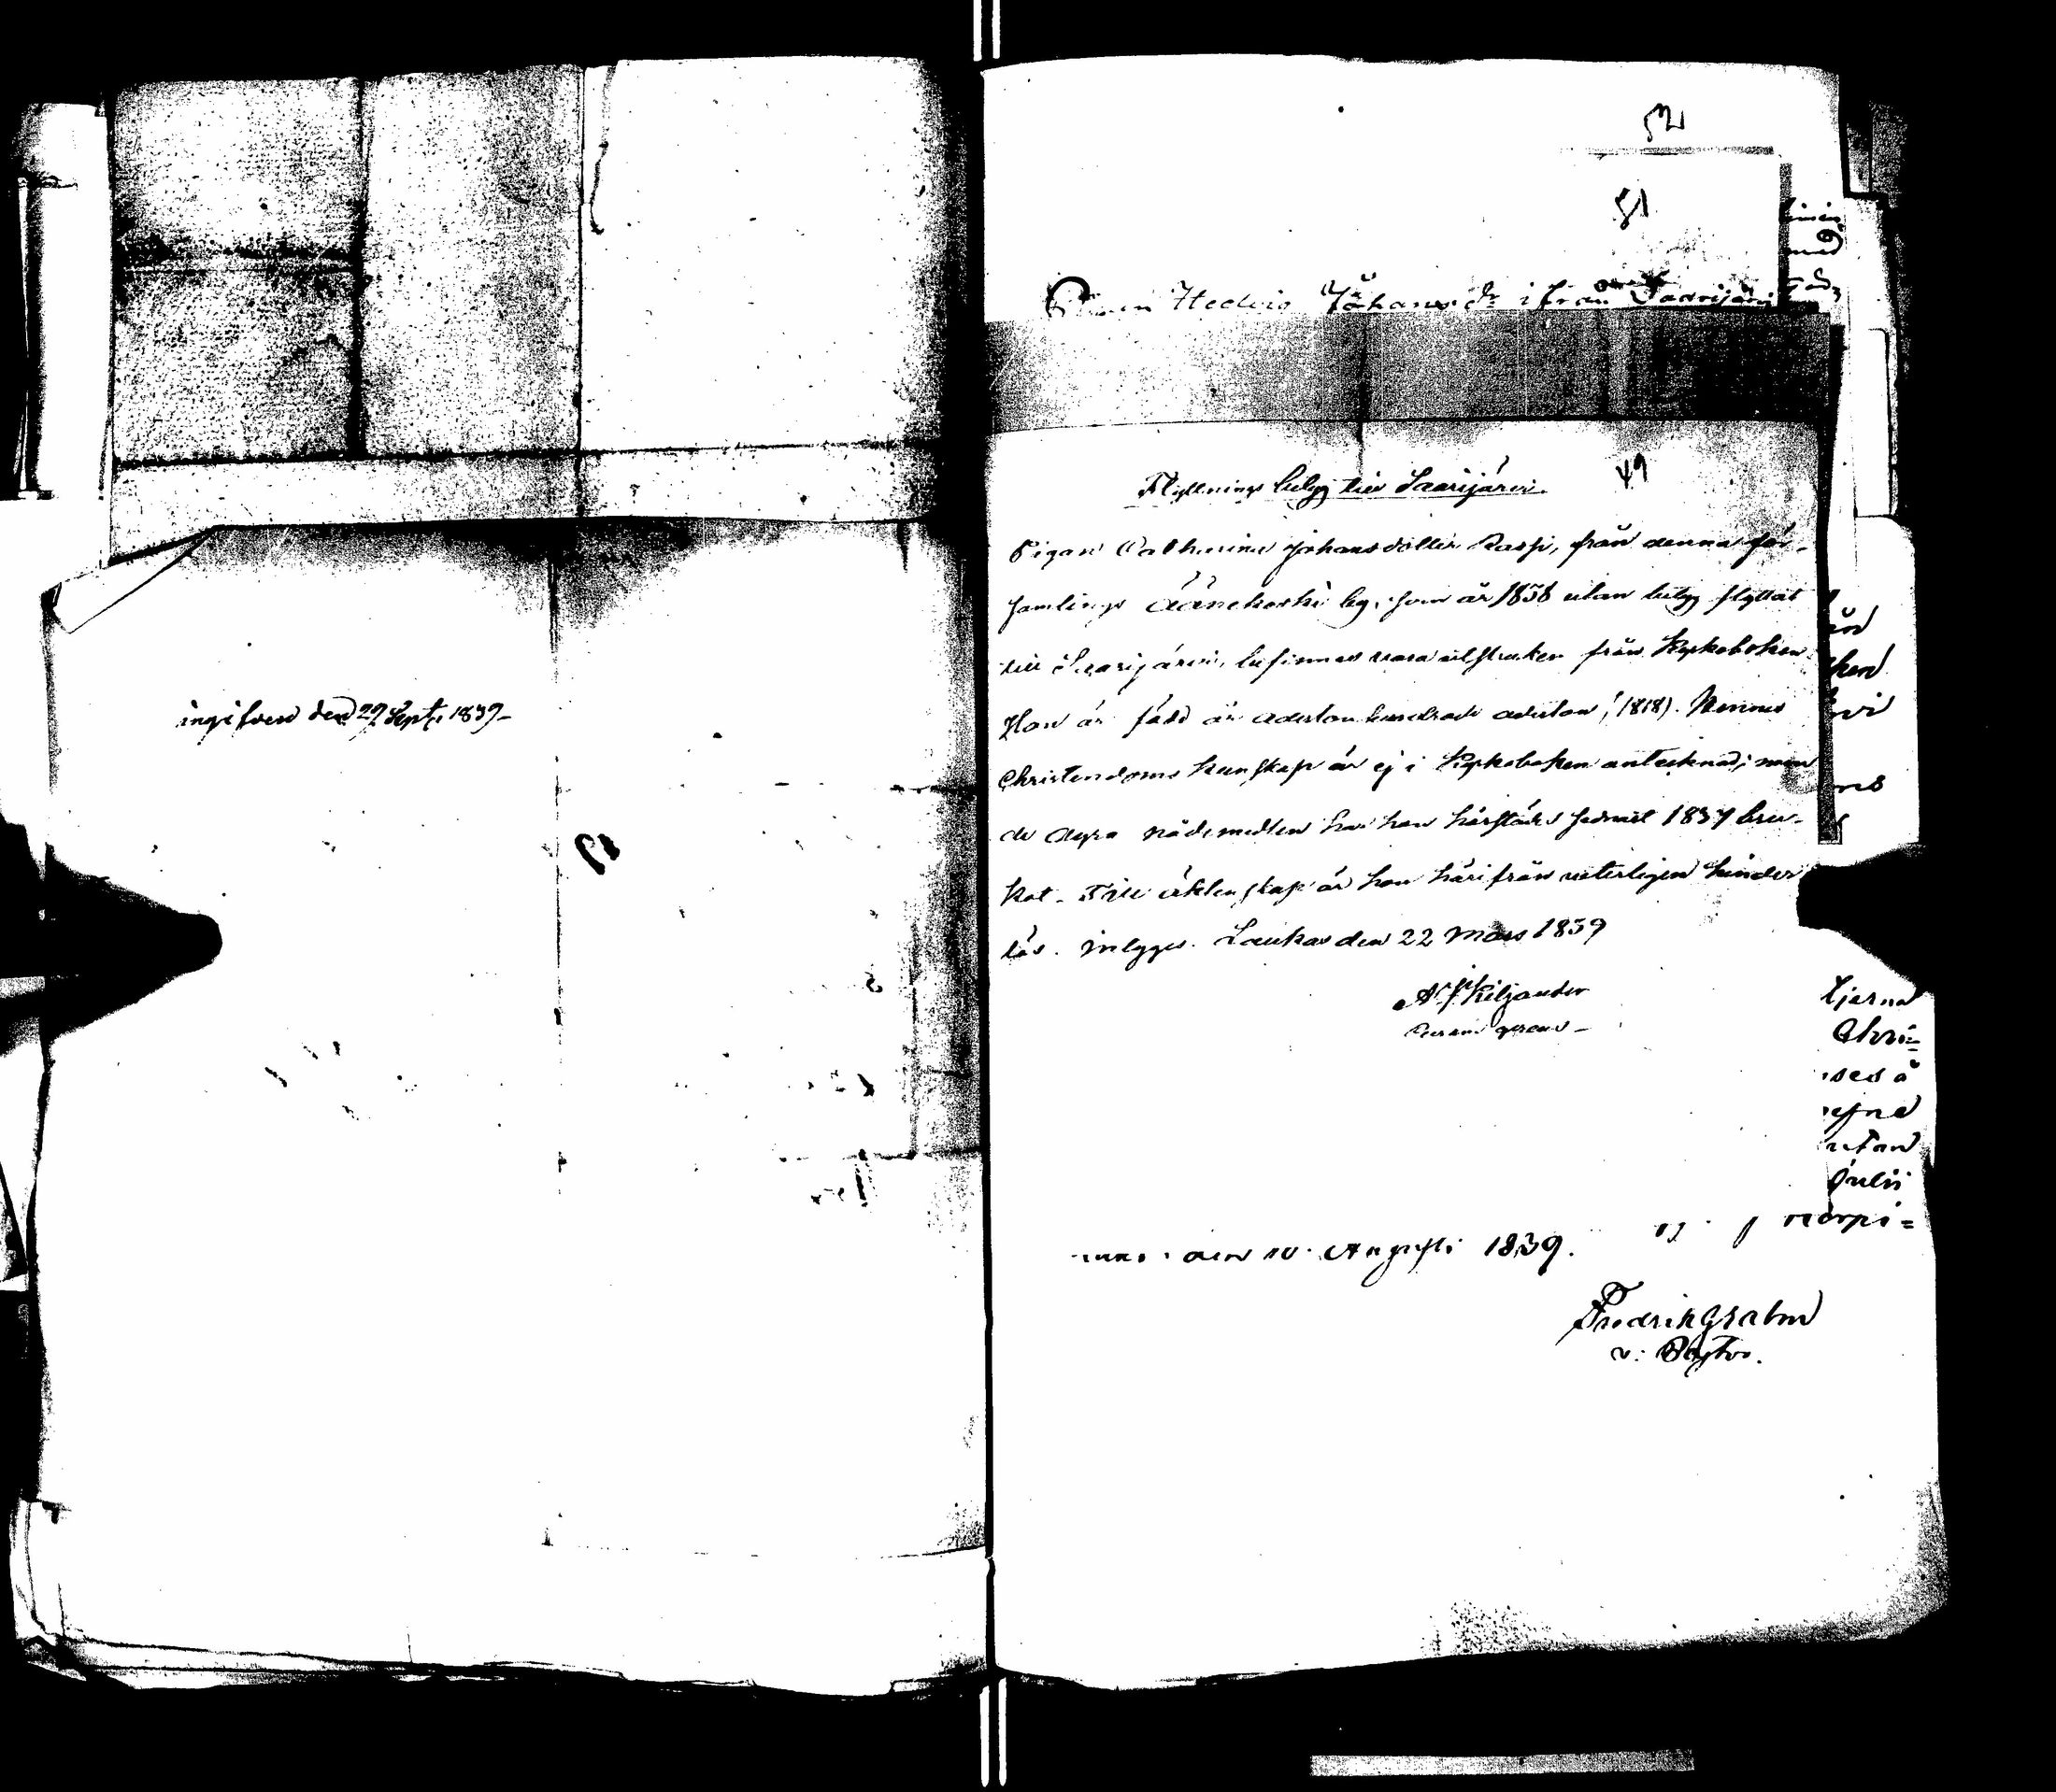 ingifven den 29 Sept. 1839
52
51
Pigan Hedvig Johansdr ifrån Saarijärvi
49
Flyttnings betyg till Saarijärvi.
Pigan Catharina Johansdotter Raspi, från denna för-
samlings Äänekoski by, som år 1838 utan betyg flyttat
till Saarijärvi, befinnes vara utstruken från Kyrkoboken.
Hon är född år adertonhundrade aderton (1818). Hennes
Christendoms kunskap är ej i Kyrkoboken antecknad; men
de dyra nådemedlen har hon härstädes sednast 1837 bru-
kat. Till äktenskap är hon härifrån veterligen hinder
lös. intygas. Laukas den 22 Mars 1839
Kiljander
den 10 Augusti 1839.
Fredrik Grahn
v: Pastor.
tjerna
Chri=
utan
Julii